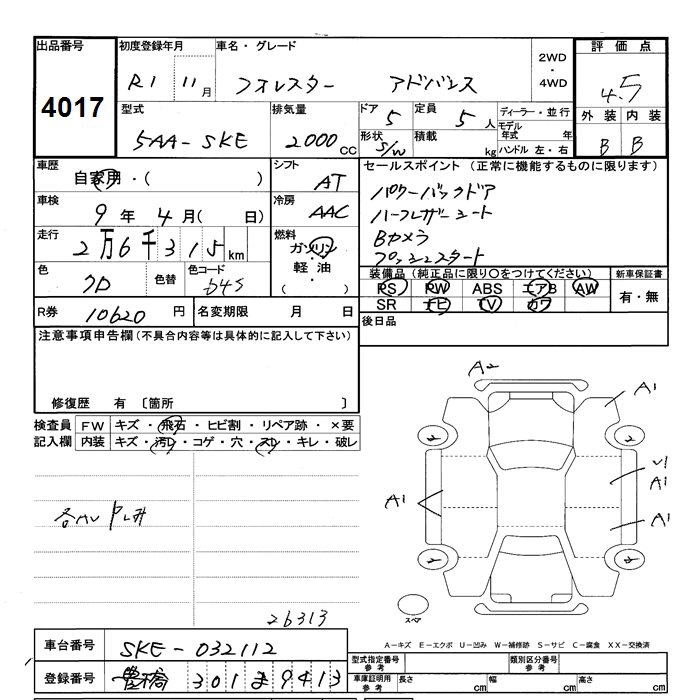 出品番号 初度登録年月 車名・グレード 2WD・4WD 評価点
4017 R1 11月 フォレスター アドバンス 4.5
型式 排気量 ドア 5 定員 5人 ディーラー・並行 外装 内装
5AA-SKE 2000cc 形状 S/W 積載 kg モデル年式 年 ハンドル 左・右 B B
車歴 自家用・( ) シフト AT セールスポイント (正常に機能するものに限ります)
車検 9年 4月( 日) 冷房 AAC パワーバックドア
ハーフレザーシート
走行 2万6千315km 燃料 ガソリン・軽油・( ) Bカメラ
プッシュスタート
色 クロ 色替 色コード 装備品 (純正品に限り○をつけてください) 新車保証書
PS PW ABS エアB AW 有・無
R券 10620円 名変期限 月 日 SR ナビ TV カワ
注意事項申告欄 (不具合内容等は具体的に記入して下さい) 後日品
修復歴 有 〔箇所 〕
検査員 FW キズ・飛石・ヒビ割・リペア跡・×要
記入欄 内装 キズ・汚レ・コゲ・穴・スレ・キレ・破レ
A2
A1
2 2
U1
A1
A1 A1
2 2
スペア
26313
A-キズ E-エクボ U-凹み W-補修跡 S-サビ C-腐食 XX-交換済
車台番号 SKE-032112 型式指定番号 参考 類別区分番号 参考
登録番号 豊橋 301 ま 9413 車庫証明用 参考 長さ cm 幅 cm 高さ cm